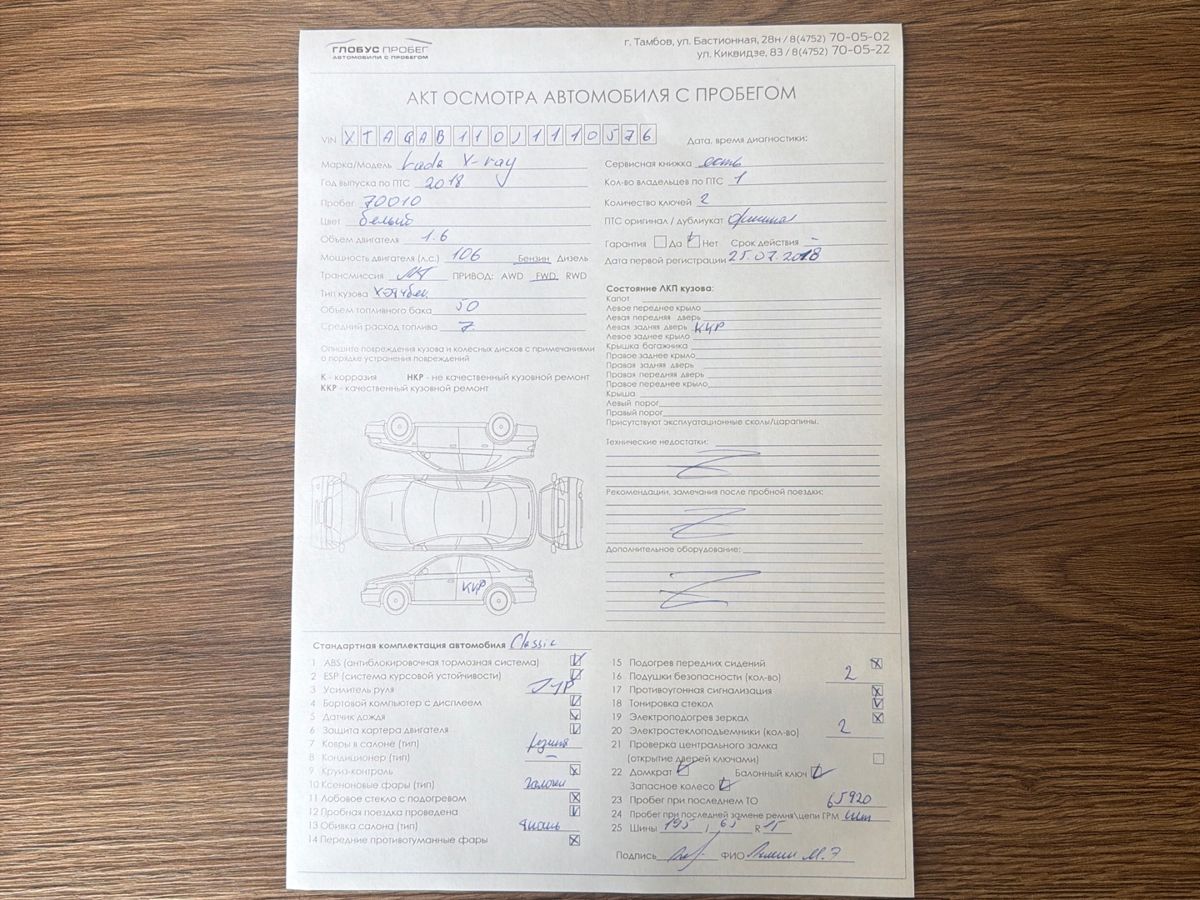 ГЛОБУС ПРОБЕГ
АВТОМОБИЛИ С ПРОБЕГОМ
г. Тамбов, ул. Бастионная, 28н / 8(4752) 70-05-02
ул. Киквидзе, 83 / 8(4752) 70-05-22
АКТ ОСМОТРА АВТОМОБИЛЯ С ПРОБЕГОМ
VIN XTAGAB110J1110576
Дата, время диагностики:
Марка/Модель Lada X-ray
Год выпуска по ПТС 2018
Пробег 70010
Цвет белый
Объем двигателя 1.6
Мощность двигателя (л.с.) 106 Бензин Дизель
Трансмиссия МТ ПРИВОД: AWD FWD RWD
Тип кузова Хэтчбек
Объем топливного бака 50
Средний расход топлива 7
Сервисная книжка есть
Кол-во владельцев по ПТС 1
Количество ключей 2
ПТС оригинал / дубликат
Гарантия Да Нет Срок действия -
Дата первой регистрации 25.07.2018
Опишите повреждения кузова и колесных дисков с примечаниями
о порядке устранения повреждений
К - коррозия НКР - не качественный кузовной ремонт
ККР - качественный кузовной ремонт
ККР
Состояние ЛКП кузова:
Капот
Левое переднее крыло
Левая передняя дверь
Левая задняя дверь ККР
Левое заднее крыло
Крышка багажника
Правое заднее крыло
Правая задняя дверь
Правая передняя дверь
Правое переднее крыло
Крыша
Левый порог
Правый порог
Присутствуют эксплуатационные сколы/царапины.
Технические недостатки:
Рекомендации, замечания после пробной поездки:
Дополнительное оборудование:
Стандартная комплектация автомобиля Classic
1 ABS (антиблокировочная тормозная система)
2 ESP (система курсовой устойчивости)
3 Усилитель руля
4 Бортовой компьютер с дисплеем
5 Датчик дождя
6 Защита картера двигателя
7 Ковры в салоне (тип) резина
8 Кондиционер (тип) -
9 Круиз-контроль
10 Ксеноновые фары (тип) галоген
11 Лобовое стекло с подогревом
12 Пробная поездка проведена
13 Обивка салона (тип) ткань
14 Передние противотуманные фары
15 Подогрев передних сидений
16 Подушки безопасности (кол-во) 2
17 Противоугонная сигнализация
18 Тонировка стекол
19 Электроподогрев зеркал
20 Электростеклоподъемники (кол-во) 2
21 Проверка центрального замка
(открытие дверей ключами)
22 Домкрат Балонный ключ
Запасное колесо
23 Пробег при последнем ТО 65920
24 Пробег при последней замене ремня\цепи ГРМ
25 Шины 195 / 65 R 15
Подпись ФИО